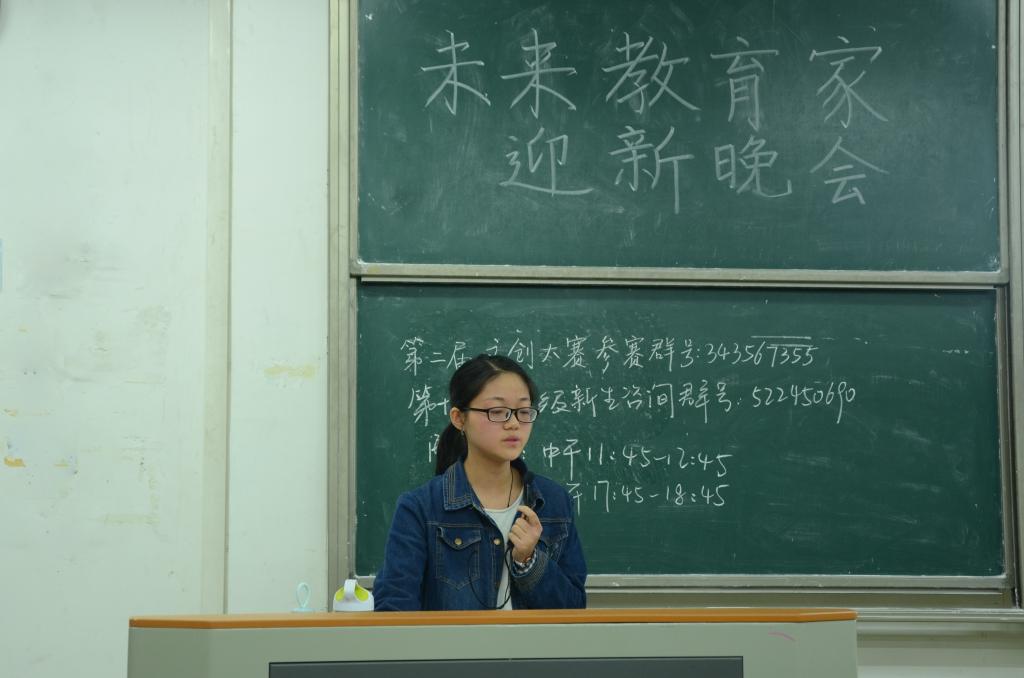 未来教育家
迎新晚会
第二届 创大赛参赛群号:343567355
第十 级新生咨询群号:522450690
:中午11:45-12:45
午17:45-18:45